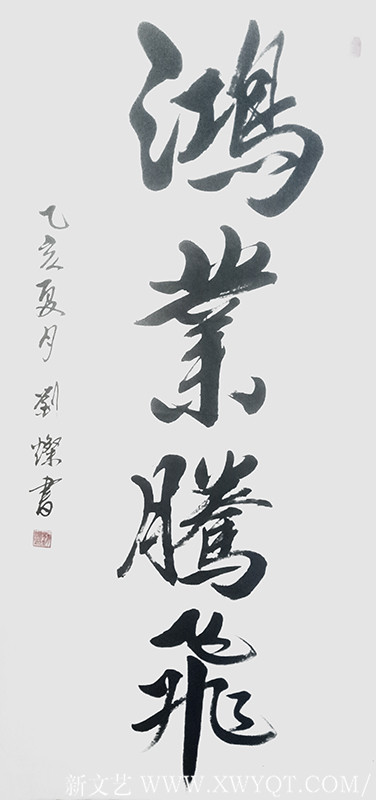 鴻業騰飛
乙亥夏月 劉燦書
新文艺 WWW.XWYQT.COM/